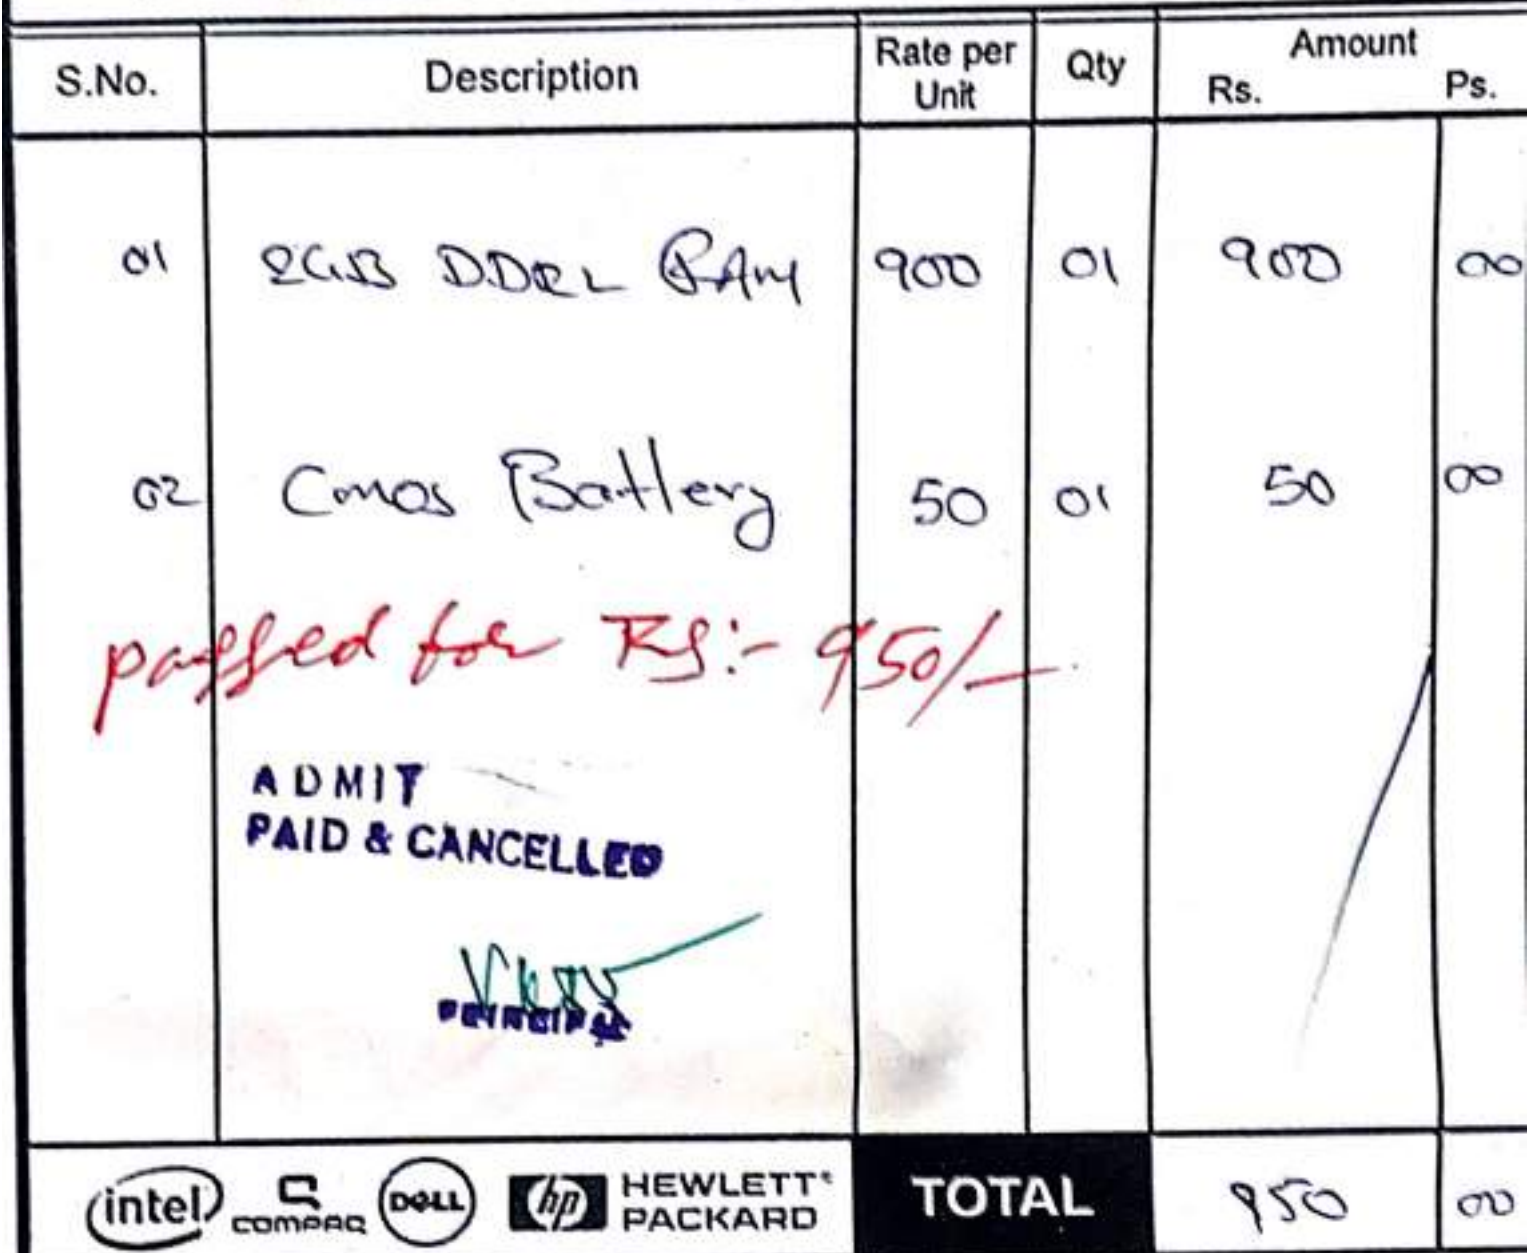 S.No. Description Rate per Unit Qty Amount Rs. Ps.
01 2GB DDR2 RAM 900 01 900 00
02 Cmos Battery 50 01 50 00
passed for Rs:- 950/-
ADMIT
PAID & CANCELLED
PRINCIPAL
intel COMPAQ DELL hp HEWLETT PACKARD TOTAL 950 00